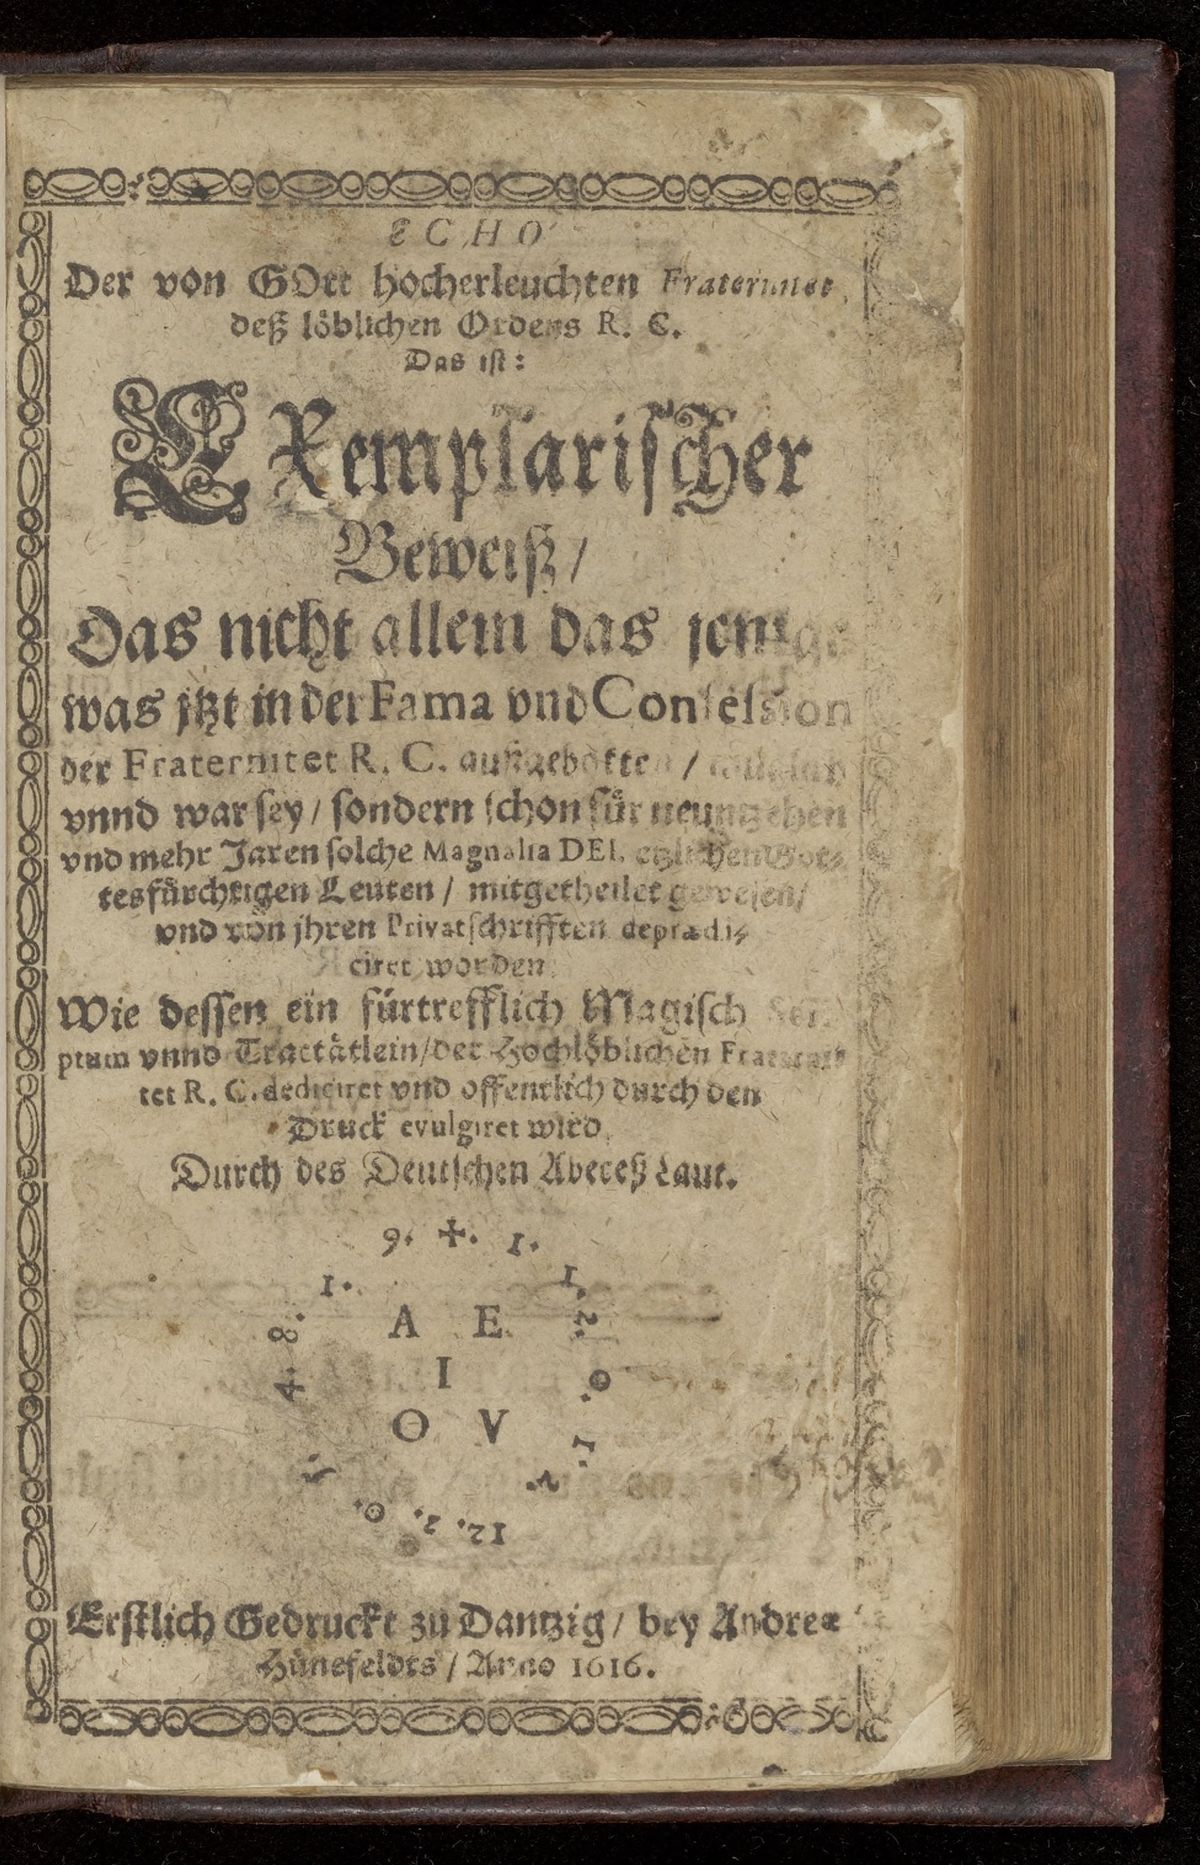 ECHO
Der von GOtt hocherleuchten Fraternitet
deß löblichen Ordens R. C.
Das ist:
EXemplarischer
Beweiß /
Das nicht allein das jenige
was jtzt in der Fama vnd Confession
der Fraternitet R. C. außgebotten /
vnnd war sey / sondern schon für neuntzehen
vnd mehr Jaren solche Magnalia DEI, etzlichen Got-
tesfürchtigen Leuten / mitgetheilet gewesen /
vnd von jhren Privatschrifften deprædi-
ciret worden.
Wie dessen ein fürtrefflich Magisch Scri-
ptum vnnd Tractätlein / der Hochlöblichen Fraterni-
tet R. C. dediciret vnd offentlich durch den
Druck evulgiret wird,
Durch des Deutschen Abeceß Laut.
9. +. 1.
1. 1.
8. A E 2.
4. I 0.
O V 1.
0. 2. 12.
Erstlich Gedruckt zu Dantzig / bey Andreæ
Hünefeldts / Anno 1616.